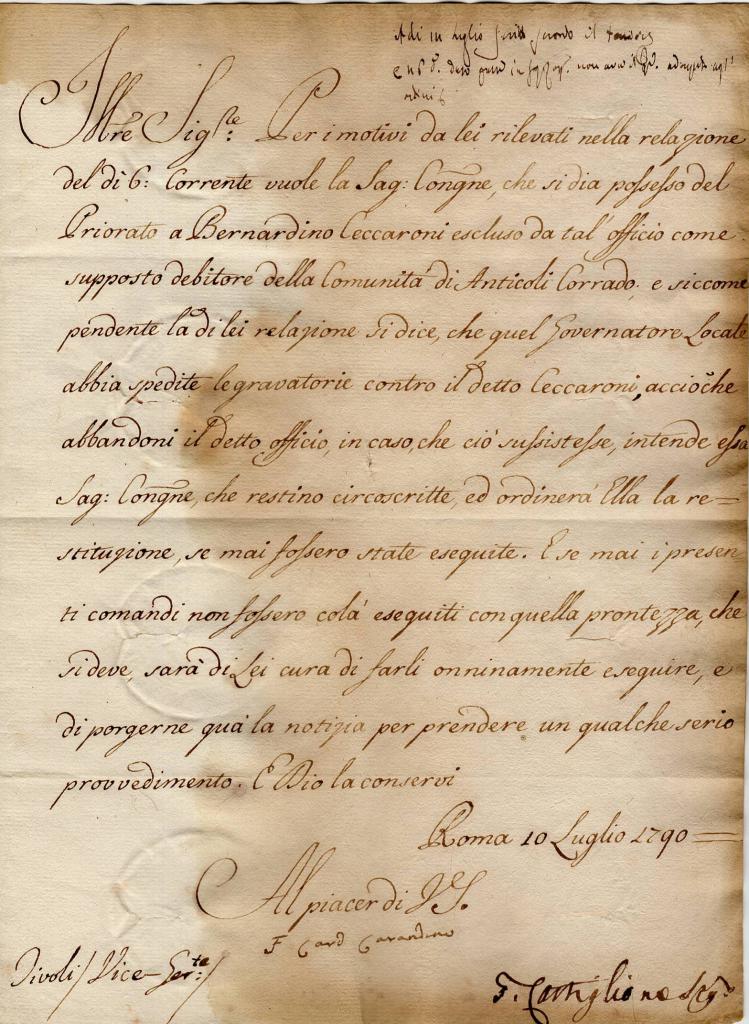 Adi 14 luglio
Illre Sigre: Per i motivi da lei rilevati nella relazione
del di 6: Corrente vuole la Sag: Congne, che si dia possesso del
Priorato a Bernardino Ceccaroni escluso da tal' officio come
supposto debitore della Comunità di Anticoli Corrado; e siccome
pendente la di lei relazione si dice, che quel Governatore Locale
abbia spedite le gravatorie contro il detto Ceccaroni, accioche
abbandoni il detto officio, in caso, che ciò sussistesse, intende essa
Sag: Congne, che restino circoscritte, ed ordinerà Ella la re=
stituzione, se mai fossero state eseguite. E se mai i presen
ti comandi non fossero colà eseguiti con quella prontezza, che
si deve, sarà di Lei cura di farli onninamente eseguire, e
di porgerne quà la notizia per prendere un qualche serio
provvedimento. E Dio la conservi
Roma 10 Luglio 1790=
Al piacer di V.S.
F Card Carandino
Tivoli / Vice-Gerte: /
F. Castiglione Seg.o